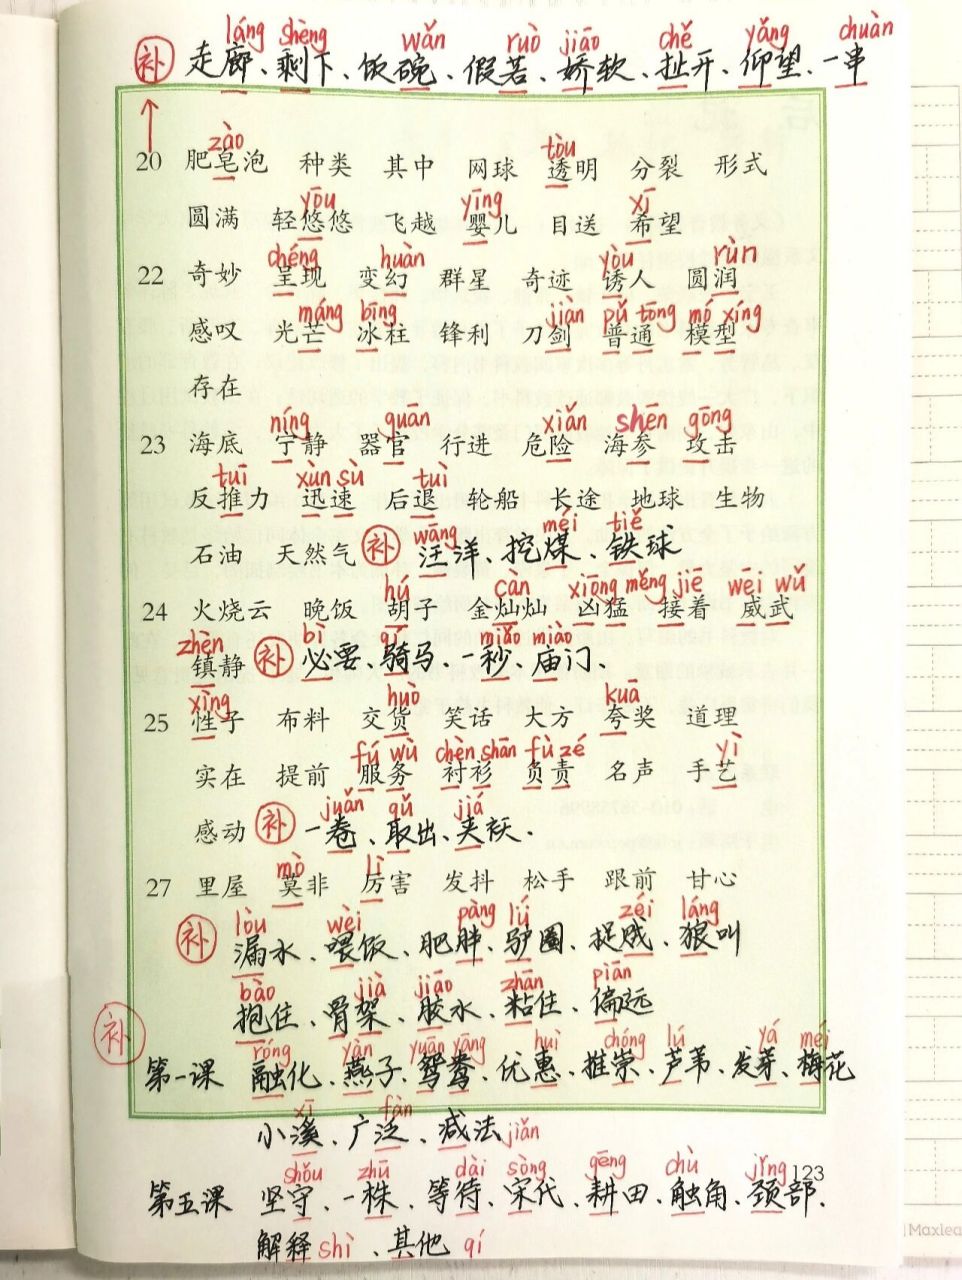 láng shèng wǎn ruò jiāo chě yǎng chuàn
补 走廊、剩下、饭碗、假若、娇软、扯开、仰望、一串
zào tòu
20 肥皂泡 种类 其中 网球 透明 分裂 形式
yōu yīng xī
圆满 轻悠悠 飞越 婴儿 目送 希望
chéng huàn yòu rùn
22 奇妙 呈现 变幻 群星 奇迹 诱人 圆润
máng bīng jiàn pǔ tōng mó xíng
感叹 光芒 冰柱 锋利 刀剑 普通 模型
存在
níng guān xiǎn shēn gōng
23 海底 宁静 器官 行进 危险 海参 攻击
tuī xùn sù tuì
反推力 迅速 后退 轮船 长途 地球 生物
wāng méi tiě
石油 天然气 补 汪洋、挖煤、铁球
hú càn xiōng měng jiē wēi wǔ
24 火烧云 晚饭 胡子 金灿灿 凶猛 接着 威武
zhèn bì qí miǎo miào
镇静 补 必要、骑马、一秒、庙门、
xìng huò kuā
25 性子 布料 交货 笑话 大方 夸奖 道理
fú wù chèn shān fù zé yì
实在 提前 服务 衬衫 负责 名声 手艺
juǎn qǔ jiá
感动 补 一卷、取出、夹袄.
mò lì
27 里屋 莫非 厉害 发抖 松手 跟前 甘心
lòu wèi pàng lǘ zéi láng
补 漏水、喂饭、肥胖、驴圈、捉贼、狼叫
bào jià jiāo zhān piān
抱住、骨架、胶水、粘住、偏远
补
róng yàn yuān yāng huì chóng lú yá méi
第一课 融化、燕子、鸳鸯、优惠、推崇、芦苇、发芽、梅花
xī fàn
小溪、广泛、减法 jiǎn
shǒu zhū dài sòng gēng chù jǐng 123
第五课 坚守、一株、等待、宋代、耕田、触角、颈部.
解释 shì、其他 qí
Maxlea